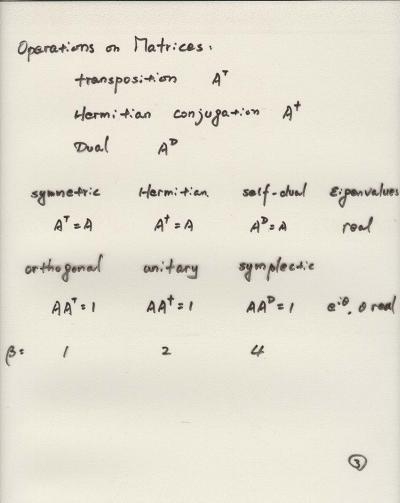 Operations on Matrices:
transposition Aᵀ
Hermitian conjugation A†
Dual Aᴰ
symmetric Hermitian self-dual Eigenvalues
Aᵀ = A A† = A Aᴰ = A real
orthogonal unitary symplectic
AAᵀ = 1 AA† = 1 AAᴰ = 1 e^{iθ}, θ real
β = 1 2 4
3